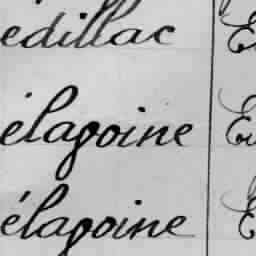 edillac
élagoine
élagoine